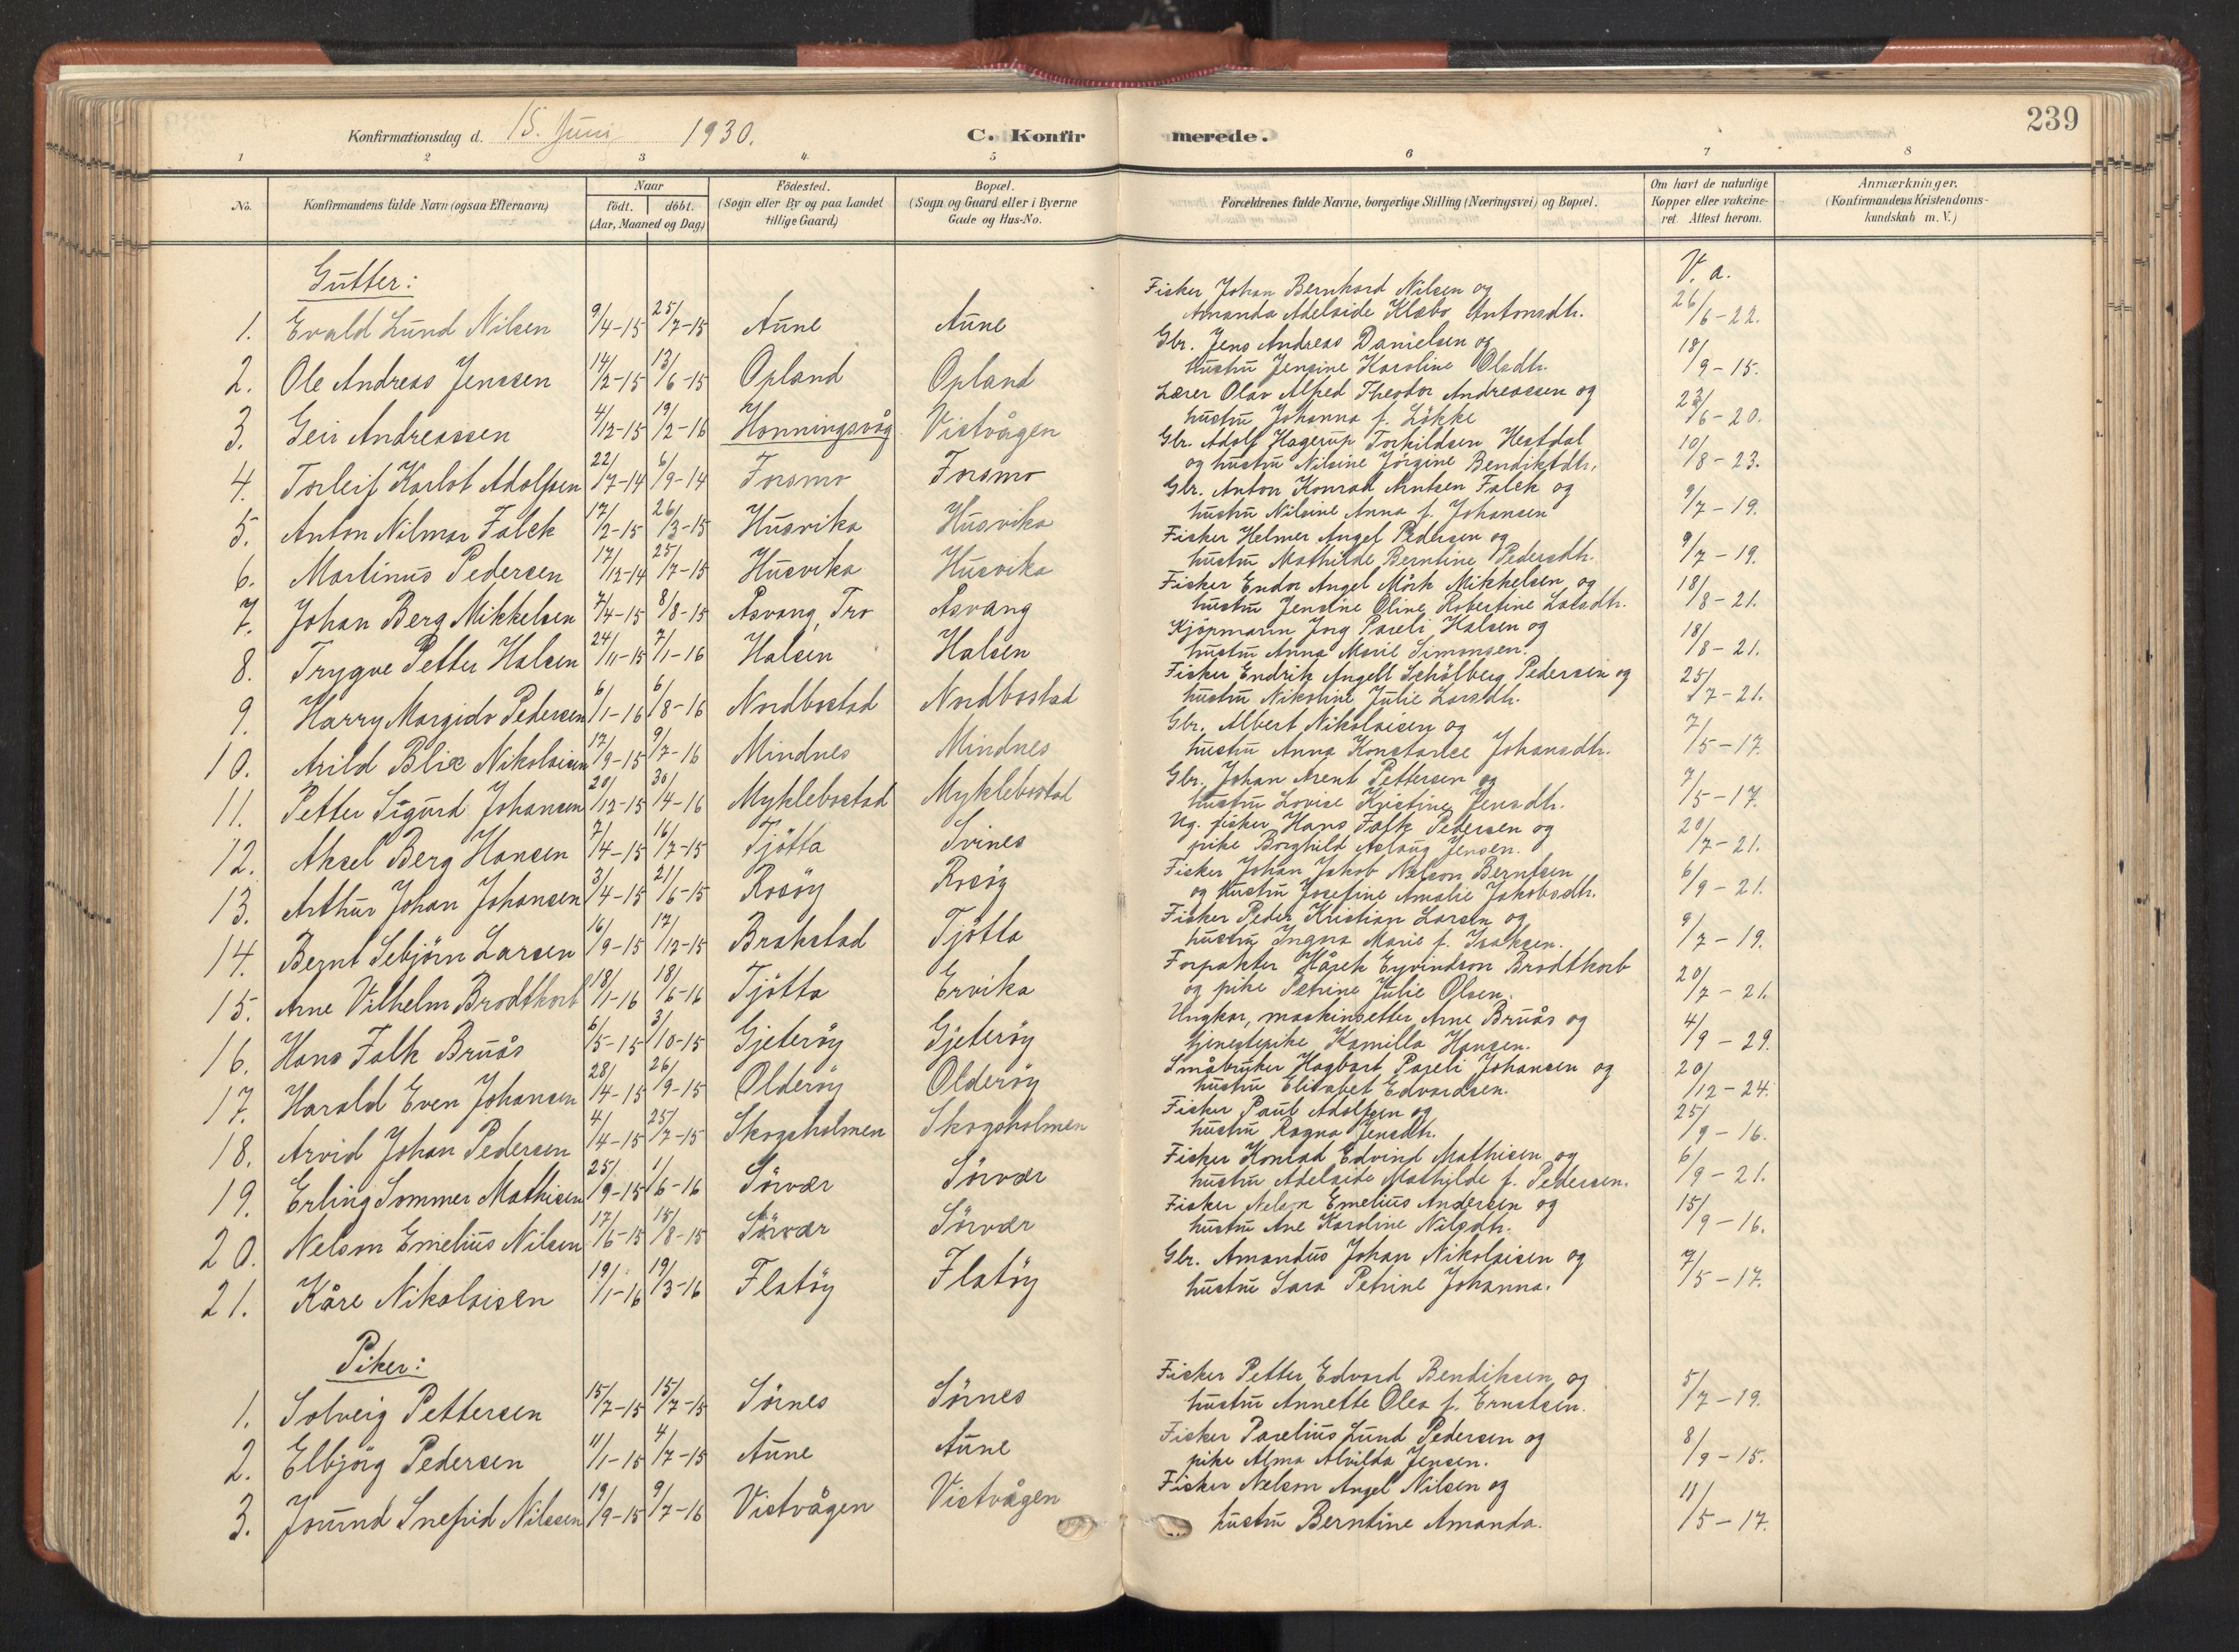 239
Konfirmationsdag d. 15. Juni 1930.
C. Konfirmerede.
1 2 3 4. 5 6 7 8
No.
Konfirmandens fulde Navn (ogsaa Efternavn)
Naar
født. døbt.
(Aar, Maaned og Dag.)
Födested.
(Sogn eller By og paa Landet
tillige Gaard)
Bopæl.
(Sogn og Gaard eller i Byerne
Gade og Hus-No.
Forældrenes fulde Navne, borgerlige Stilling (Næringsvei) og Bopæl.
Om havt de naturlige
Kopper eller vakcine-
ret. Attest herom.
Anmærkninger.
(Konfirmandens Kristendoms-
kundskab m. V.)
Gutter: V. a.
Fisker Johan Bernhard Nilsen og
1. Evald Lund Nilsen 9/4-15 25/7-15 Aune Aune Amanda Adelaide Klæbo Antonsdtr. 26/6-22.
Gbr. Jens Andreas Danielsen og
2. Ole Andreas Jenssen 14/2-15 13/6-15 Opland Opland hustru Jensine Karoline Olsdtr. 18/9-15.
Lærer Olav Alfred Theodor Andreassen og
3. Geir Andreassen 4/12-15 19/2-16 Honningsvåg Vistvågen hustru Johanna f. Løkke 23/6-20.
Gbr. Adolf Hagerup Torkildsen Hestdal
4. Torleif Karlot Adolfsen 22/7-14 6/9-14 Forsmo Forsmo og hustru Nilsine Jørgine Bendiktdtr. 10/8-23.
Gbr. Anton Konrad Arntsen Falck og
5. Anton Nilmar Falck 17/2-15 26/3-15 Husvika Husvika hustru Nilsine Anna f. Johansen 9/7-19.
Fisker Helmer Angel Pedersen og
6. Martinus Pedersen 17/12-14 25/7-15 Husvika Husvika hustru Mathilde Berntine Pedersdtr. 9/7-19.
Fisker Endor Angel Mørk Mikkelsen og
7. Johan Berg Mikkelsen 7/4-15 8/8-15 Åsvang, Tro Åsvang hustru Jensine Oline Robertine Larsdtr. 18/8-21.
Kjøpmann Jorg Pareli Halsen og
8. Trygve Petter Halsen 24/11-15 7/1-16 Halsen Halsen hustru Anna Marie Simonsen. 18/8-21.
Fisker Endrik Angell Schølberg Pedersen og
9. Harry Margido Pedersen 6/1-16 6/8-16 Nordbostad Nordbostad hustru Nikoline Julie Larsdtr. 25/7-21.
Gbr. Albert Nikolaisen og
10. Arild Blix Nikolaisen 17/9-15 9/7-16 Mindnes Mindnes hustru Anna Konstanse Johansdtr. 7/5-17.
Gbr. Johan Arent Pettersen og
11. Petter Sigurd Johansen 20/12-15 30/4-16 Myklebostad Myklebostad hustru Lovise Kristine Jensdtr. 7/5-17.
Ug. fisker Hans Falk Pedersen og
12. Aksel Berg Hansen 7/4-15 16/7-15 Tjøtta Svines pike Borghild Aslaug Jensen. 20/7-21.
Fisker Johan Jakob Nelson Berntsen
13. Arthur Johan Johansen 3/4-15 21/6-15 Rosøy Rosøy og hustru Josefine Amalie Jakobsdtr. 6/9-21.
Fisker Peder Kristian Larsen og
14. Bernt Sebjørn Larsen 16/9-15 17/12-15 Brakstad Tjøtta hustru Ingna Marie f. Isaksen. 9/7-19.
Forpakter Hårek Eyvindson Brodtkorb
15. Arne Vilhelm Brodtkorb 18/1-16 18/6-16 Tjøtta Ervika og pike Petrine Julie Olsen. 20/7-21.
Ungkar, maskinsetter Arne Bruås og
16. Hans Falk Bruås 6/5-15 3/10-15 Gjeterøy Gjeterøy tjenestepike Kamilla Hansen. 4/9-29.
Småbruker Hagbart Pareli Johansen og
17. Harald Even Johansen 28/4-15 26/9-15 Olderøy Olderøy hustru Elisabet Edvardsen. 20/12-24.
Fisker Paul Adolfsen og
18. Arvid Johan Pedersen 4/4-15 25/7-15 Skogsholmen Skogsholmen hustru Ragna Jensdtr. 25/9-16.
Fisker Konrad Edvind Mathisen og
19. Erling Sommer Mathisen 25/9-15 1/6-16 Sørvær Sørvær hustru Adelaide Mathilde f. Pedersen. 6/9-21.
Fisker Nelson Emelius Andersen og
20. Nelson Emelius Nilsen 17/6-15 15/8-15 Sørvær Sørvær hustru Ane Karoline Nilsdtr. 15/9-16.
Gbr. Amandus Johan Nikolaisen og
21. Kåre Nikolaisen 19/1-16 19/3-16 Flatøy Flatøy hustru Sara Petrine Johanna. 7/5-17.
Piker:
Fisker Petter Edvard Bendiksen og
1. Solveig Pettersen 15/7-15 15/7-15 Sørnes Sørnes hustru Annette Olea f. Ernstsen. 5/7-19.
Fisker Parelius Lund Pedersen og
2. Elbjørg Pedersen 11/1-15 4/7-15 Aune Aune pike Alma Alvilda Jensen. 8/9-15.
Fisker Nelson Angel Nilsen og
3. Jorund Snefrid Nilssen 19/9-15 9/7-16 Vistvågen Vistvågen hustru Berntine Amanda. 11/5-17.